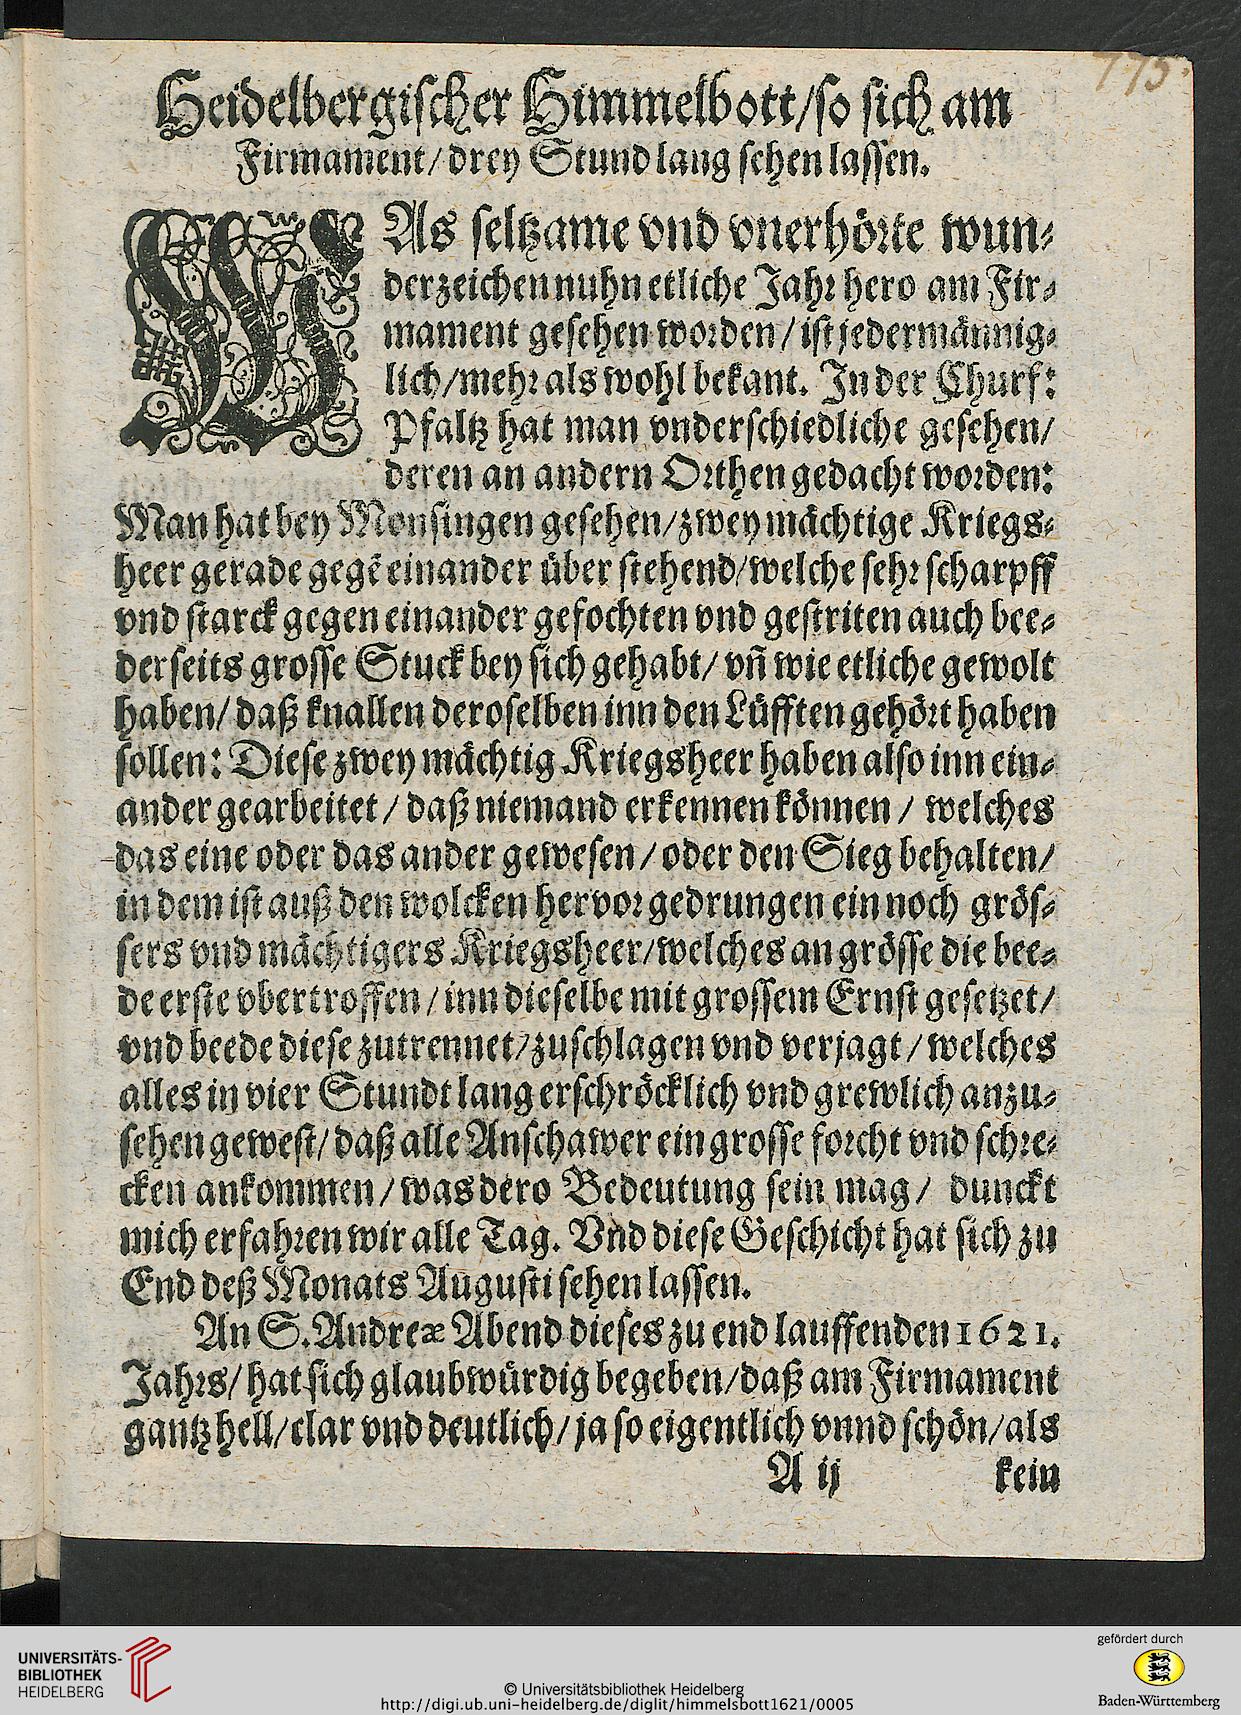 775.
Heidelbergischer Himmelbott/so sich am
Firmament/drey Stund lang sehen lassen.
WAs seltzame vnd vnerhörte wun-
derzeichen nuhn etliche Jahr hero am Fir-
mament gesehen worden/ist jedermännig-
lich/mehr als wohl bekant. In der Churf:
Pfaltz hat man vnderschiedliche gesehen/
deren an andern Orthen gedacht worden:
Man hat bey Monsingen gesehen/zwey mächtige Kriegs-
heer gerade gegẽ einander über stehend/welche sehr scharpff
vnd starck gegen einander gefochten vnd gestriten auch bee-
derseits grosse Stuck bey sich gehabt/vñ wie etliche gewolt
haben/daß knallen deroselben inn den Lüfften gehört haben
sollen: Diese zwey mächtig Kriegsheer haben also inn ein-
ander gearbeitet/daß niemand erkennen können/welches
das eine oder das ander gewesen/oder den Sieg behalten/
in dem ist auß den wolcken hervor gedrungen ein noch grös-
sers vnd mächtigers Kriegsheer/welches an grösse die bee-
de erste vbertroffen/inn dieselbe mit grossem Ernst gesetzet/
vnd beede diese zutrennet/zuschlagen vnd verjagt/welches
alles in vier Stundt lang erschröcklich vnd grewlich anzu-
sehen gewest/daß alle Anschawer ein grosse forcht vnd schre-
cken ankommen/was dero Bedeutung sein mag/ dunckt
mich erfahren wir alle Tag. Vnd diese Geschicht hat sich zu
End deß Monats Augusti sehen lassen.
An S. Andreæ Abend dieses zu end lauffenden 1621.
Jahrs/hat sich glaubwürdig begeben/daß am Firmament
gantz hell/clar vnd deutlich/ja so eigentlich vnnd schön/als
A ij kein
UNIVERSITÄTS-
BIBLIOTHEK
HEIDELBERG
© Universitätsbibliothek Heidelberg
http://digi.ub.uni-heidelberg.de/diglit/himmelsbott1621/0005
gefördert durch
Baden-Württemberg